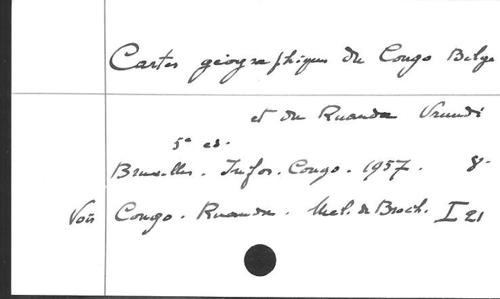 Cartes géographiques du Congo Belge
et du Ruanda Urundi
5e ed.
Bruxelles. Infor. Congo. 1957. 8°
Voir Congo. Ruanda. Mel. de Broch. I 21